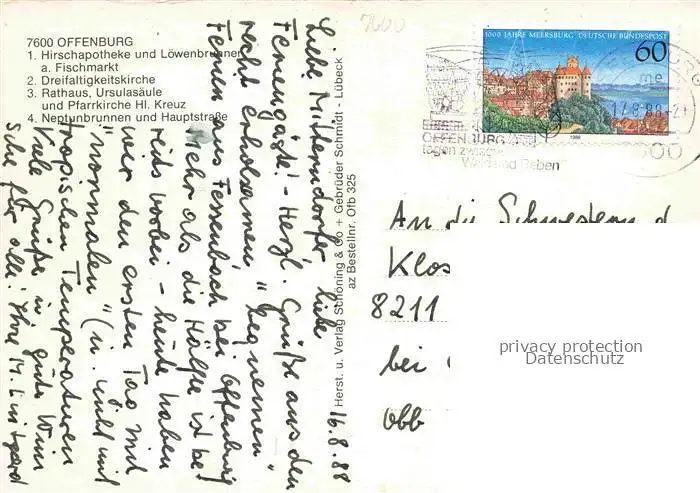 7600 OFFENBURG
1. Hirschapotheke und Löwenbrunnen
a. Fischmarkt
2. Dreifaltigkeitskirche
3. Rathaus, Ursulasäule
und Pfarrkirche Hl. Kreuz
4. Neptunbrunnen und Hauptstraße
7600
1000 JAHRE MEERSBURG DEUTSCHE BUNDESPOST
60
1988
17.8.88-21
OFFENBURG
tagen zwischen
Wald und Reben"
Herst. u. Verlag Schöning & Co + Gebrüder Schmidt - Lübeck
az Bestellnr. Ofb 325
16.8.88
Liebe Mitterndorfer, liebe
Feriengäste! - Herzl. Grüße aus den
recht erholsamen, "bequemen"
Ferien aus Fessenbach bei Offenburg
Mehr als die Hälfte ist be
reits vorbei - heute haben
wir den ersten Tag mit
"normalen" (u. nicht mit
tropischen Temperaturen
Viele Grüße u. gute Wün
sche für alle! Ihre M.
An die Schwestern d
Klos
8211
bei
Obb
privacy protection
Datenschutz